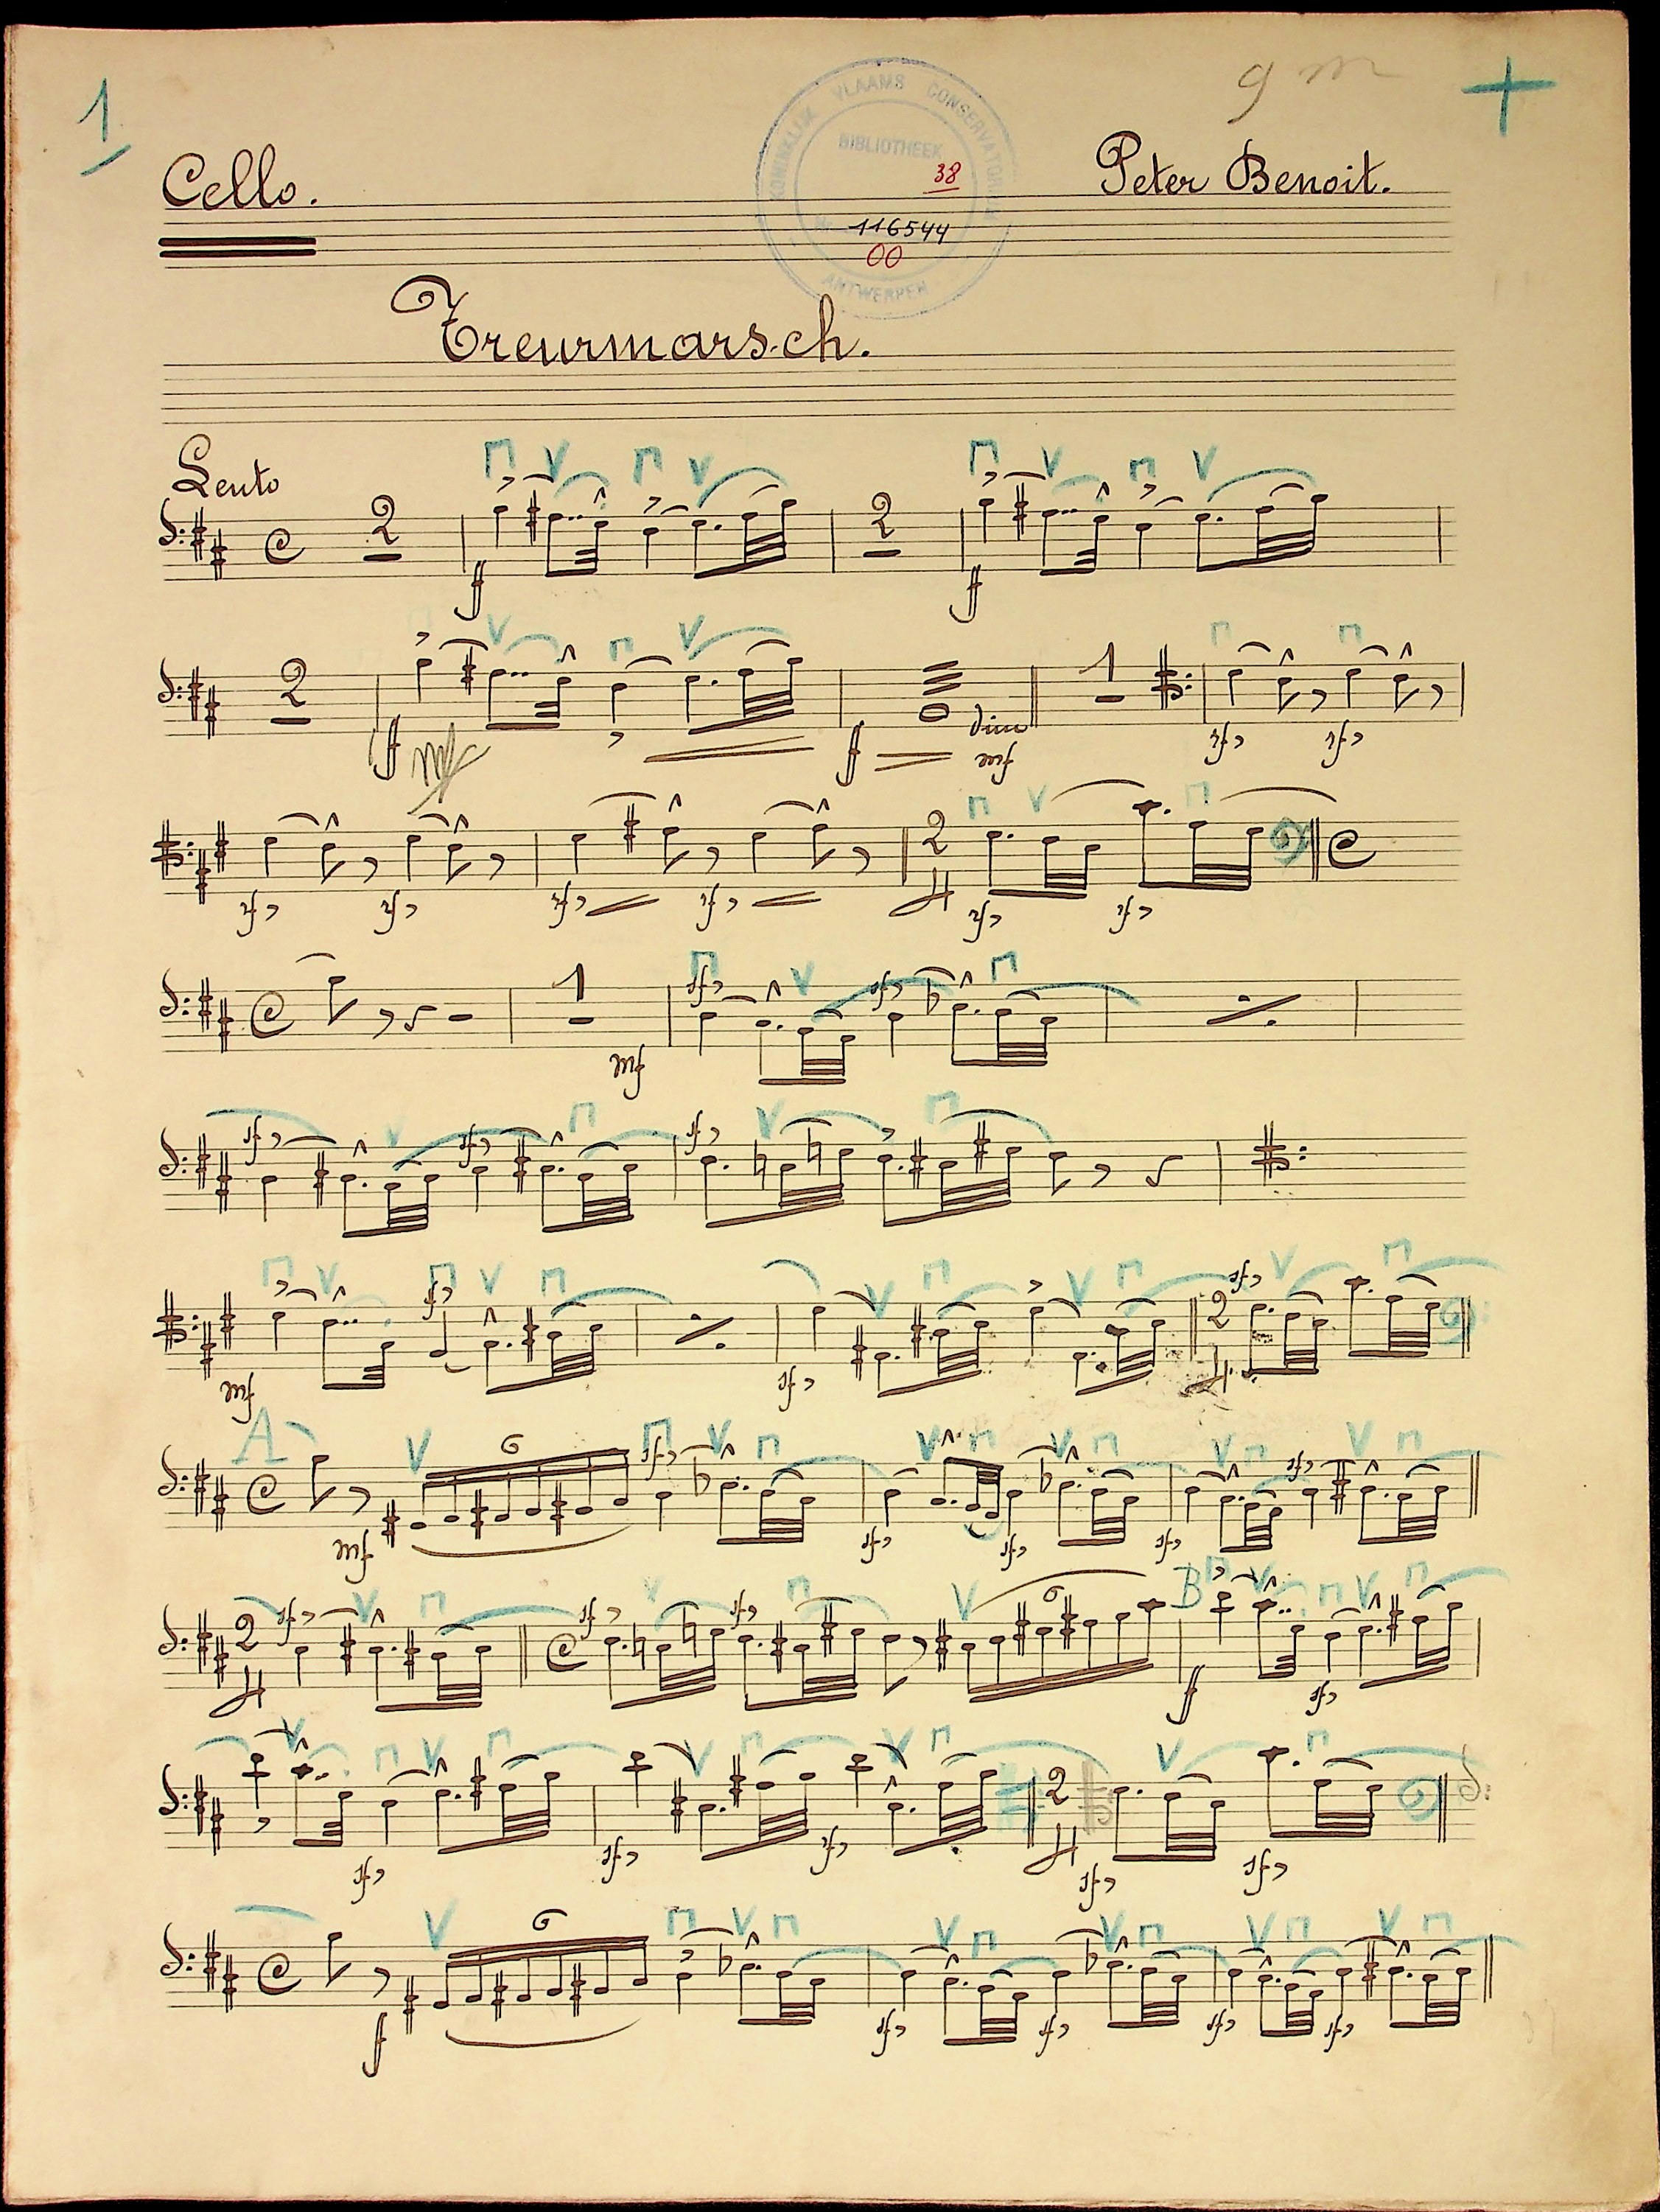 1
9 m
+
Cello.
KONINKLIJK VLAAMS CONSERVATORIUM
BIBLIOTHEEK
38
Nr. 116544
00
ANTWERPEN
Peter Benoit.
Treurmarsch.
Lento
2 2
f f
2 1
f mf f dim mf rf rf
2
rf rf rf rf 4 rf rf
1 sf sf
mf
sf sf sf
sf 2 sf
mf sf 4
A 6 sf
mf sf sf sf sf
2 sf sf sf 6 B
4 f sf
2
sf sf rf 4 sf sf
6
f sf sf sf sf